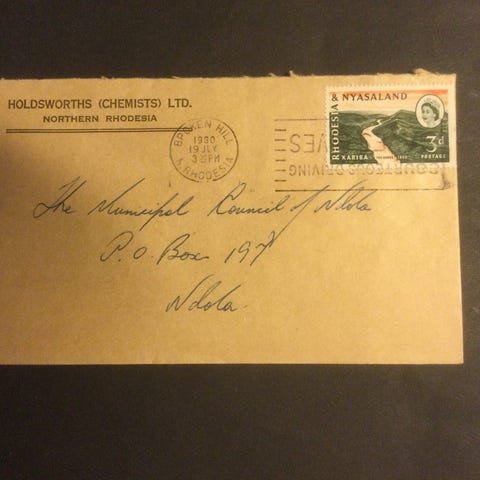 HOLDSWORTHS (CHEMISTS) LTD.
NORTHERN RHODESIA
BROKEN HILL
1960
19 JLY
3 PM
N. RHODESIA
COURTEOUS DRIVING
SAVES
RHODESIA & NYASALAND
3d
KARIBA
POSTAGE
The Municipal Council of Ndola
P.O. Box 197
Ndola.